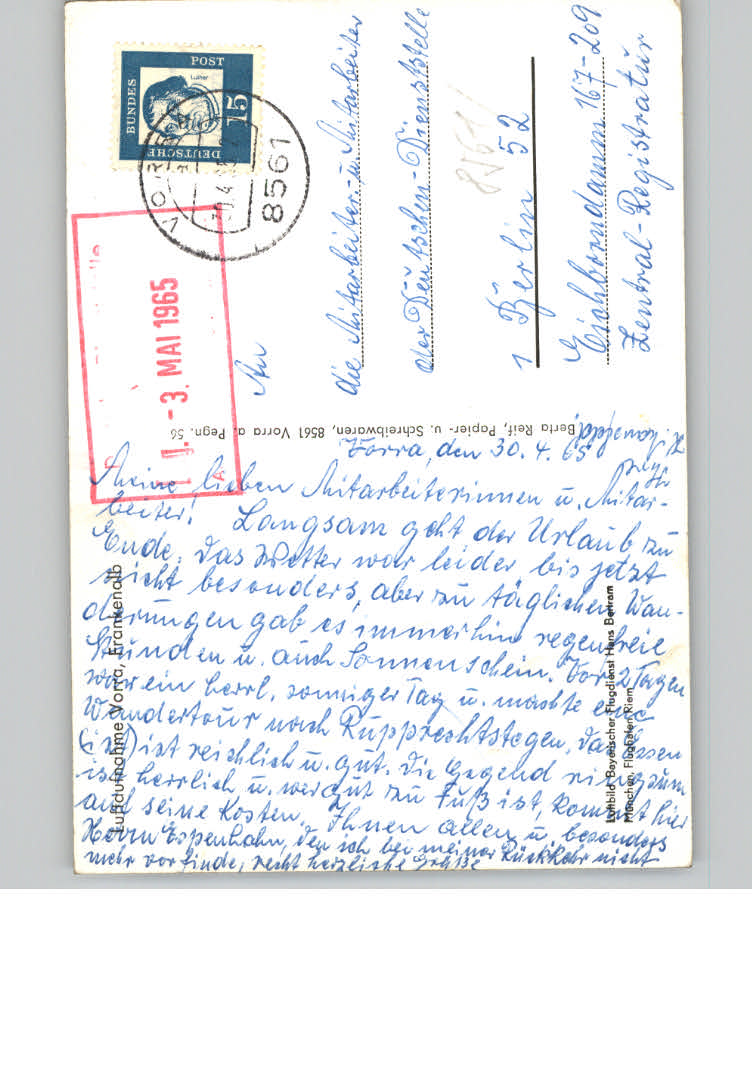 DEUTSCHE
BUNDES
POST
Luther
15
30.4.65
8561
- 3. MAI 1965
8561
An
die Mitarbeiter u. Mitarbeiter
der Deutschen Dienststelle
1 Berlin 52
Eichborndamm 167-209
Zentral-Registratur
Berta Reif, Papier- u. Schreibwaren, 8561 Vorra a. Pegn. 56
Vorra, den 30. 4. 65
Meine lieben Mitarbeiterinnen u. Mitar-
beiter! Langsam geht der Urlaub zu
Ende. Das Wetter war leider bis jetzt
nicht besonders, aber zu täglichen Wan-
derungen gab es immerhin regenfreie
Stunden u. auch Sonnenschein. Vor 2 Tagen
war ein herrl. sonniger Tag u. machte eine
Wandertour nach Rupprechtstegen, das Essen
(ist) ist reichlich u. gut. Die Gegend ringsum
ist herrlich u. wer gut zu Fuß ist, kommt hier
auf seine Kosten. Ihnen allen u. besonders
Herrn Espenhahn, den ich bei meiner Rückkehr nicht
mehr vorfinde, recht herzliche Grüße
Luftaufnahme Vorra, Frankenalb
Luftbild Bayerischer Flugdienst Hans Bertram
München, Flughafen Riem